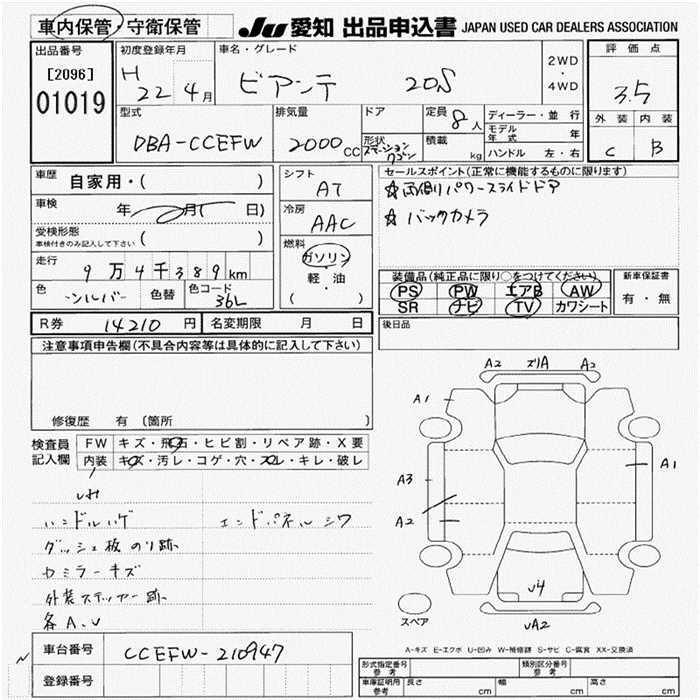 車内保管・守衛保管 JU 愛知 出品申込書 JAPAN USED CAR DEALERS ASSOCIATION
出品番号 初度登録年月 車名・グレード 評価点
[2096] H 22 4月 ビアンテ 20S 2WD・4WD 3.5
01019 外装 内装
C B
型式 排気量 ドア 定員 8人 ディーラー・並行
DBA-CCEFW 2000CC 形状 ステーションワゴン 積載 kg モデル年式 年
ハンドル 左・右
車歴 自家用・( ) シフト AT セールスポイント(正常に機能するものに限ります)
☆両側パワースライドドア
車検 年 月( 日) 冷房 AAC ☆バックカメラ
受検形態 車検付きのみ記入して下さい ( ) 燃料 ガソリン
軽・油
( )
走行 9万4千389km 装備品(純正品に限り○をつけてください) 新車保証書
色 シルバー 色替 色コード 36L PS PW エアB AW 有・無
SR ナビ TV カワシート
R券 14210円 名変期限 月 日 後日品
注意事項申告欄(不具合内容等は具体的に記入して下さい)
修復歴 有 〔箇所 〕
検査員記入欄 FW キズ・飛石・ヒビ割・リペア跡・X要
内装 キズ・汚レ・コゲ・穴・スレ・キレ・破レ
ハンドルハゲ エンドパネルシワ
ダッシュ板のり跡
カミラーキズ
外装ステッカー跡
各A、U
A2 ズリA A2
A1
A1
A3
A2
U4
スペア UA2
A-キズ E-エクボ U-凹み W-補修跡 S-サビ C-腐食 XX-交換済
車台番号 CCEFW-210947
登録番号
形式指定番号 参考 類別区分番号 参考
車庫証明用 参考 長さ cm 幅 cm 高さ cm